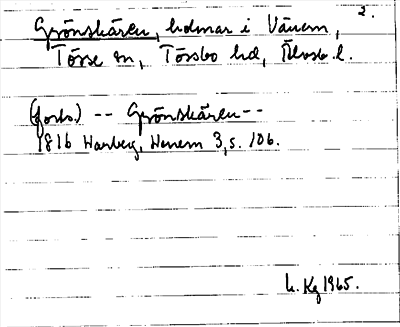 2.
Grönskären, holmar i Vänern,
Tösse sn, Tössbo hd, Älvsb. l.
(forts.) -- Grönskären --
1816 Warberg, Wenern 3, s. 106.
L. Kg 1965.